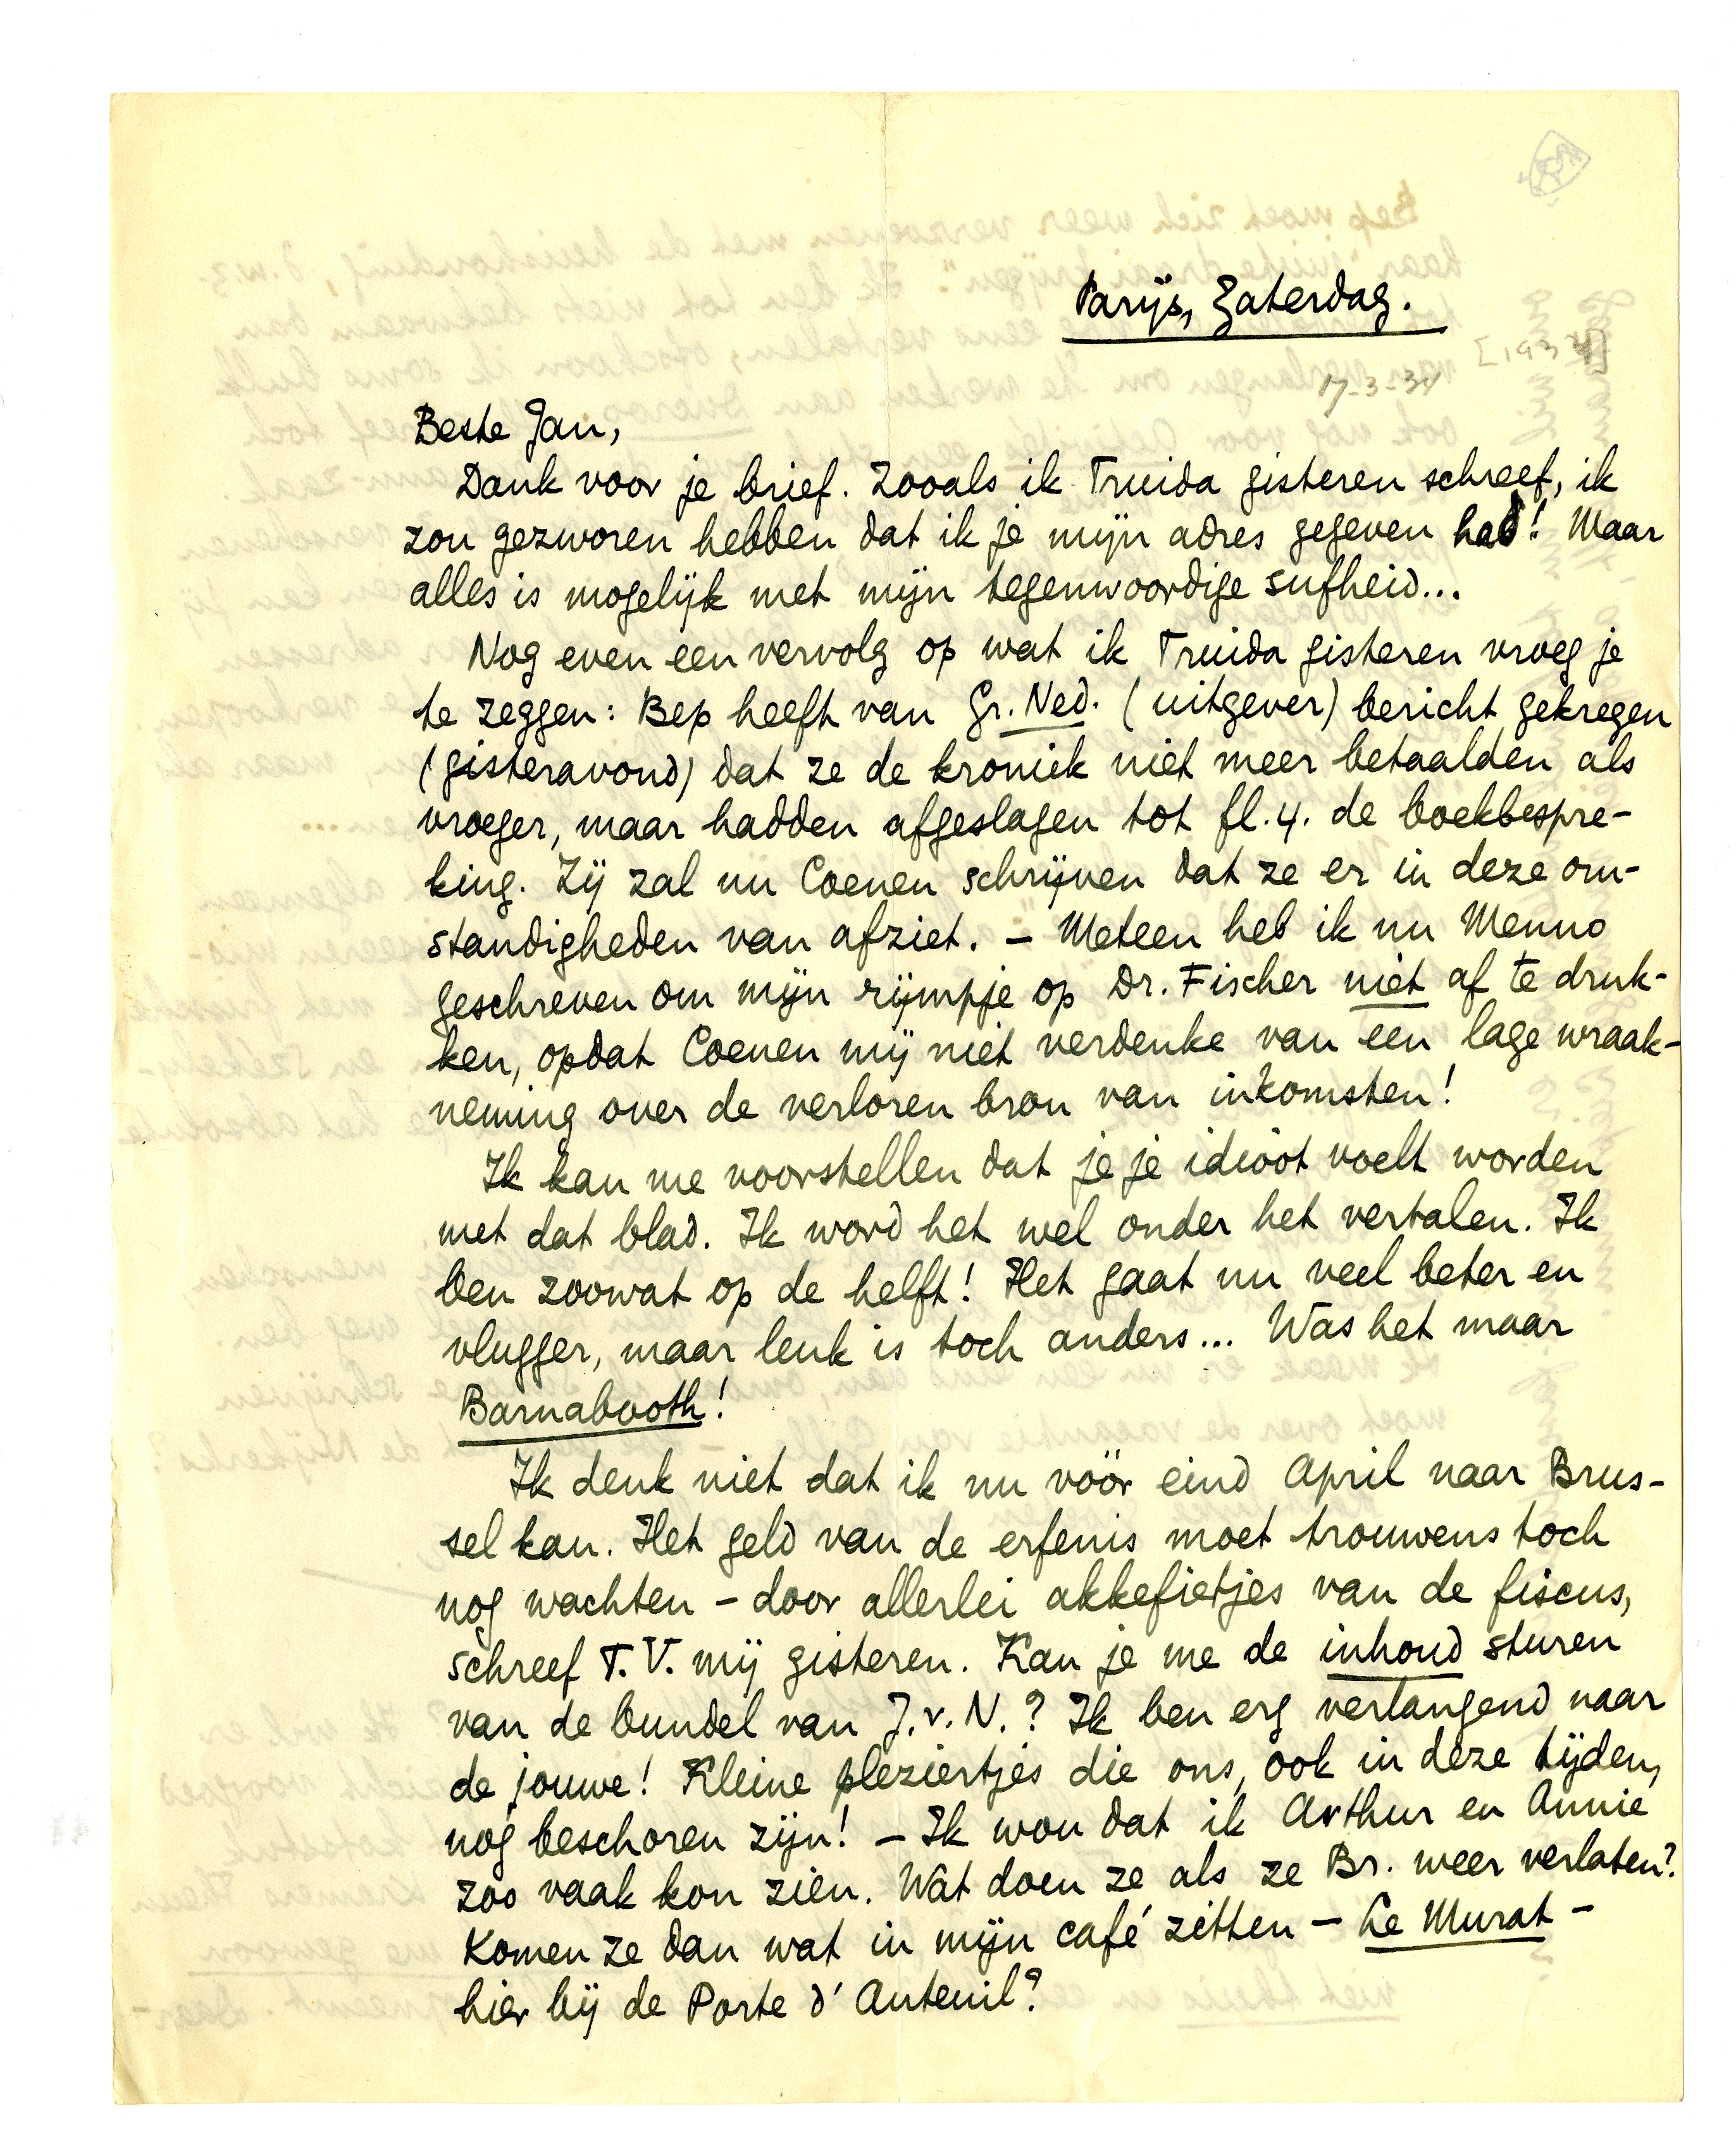 Parijs, Zaterdag.
[1934]
17-3-34
Beste Jan,
Dank voor je brief. Zooals ik Truida gisteren schreef, ik
zou gezworen hebben dat ik je mijn adres gegeven had! Maar
alles is mogelijk met mijn tegenwoordige sufheid...
Nog even een vervolg op wat ik Truida gisteren vroeg je
te zeggen: Bep heeft van Gr. Ned. (uitgever) bericht gekregen
(gisteravond) dat ze de kroniek niet meer betaalden als
vroeger, maar hadden afgeslagen tot fl. 4. de boekbespre-
king. Zij zal nu Coenen schrijven dat ze er in deze om-
standigheden van afziet. – Meteen heb ik nu Menno
geschreven om mijn rijmpje op Dr. Fischer niet af te druk-
ken, opdat Coenen mij niet verdenke van een lage wraak-
neming over de verloren bron van inkomsten!
Ik kan me voorstellen dat je je idioot voelt worden
met dat blad. Ik word het wel onder het vertalen. Ik
ben zoowat op de helft! Het gaat nu veel beter en
vlugger, maar leuk is toch anders... Was het maar
Barnabooth!
Ik denk niet dat ik nu vóór eind April naar Brus-
sel kan. Het geld van de erfenis moet trouwens toch
nog wachten – door allerlei akkefietjes van de fiscus,
schreef T.V. mij gisteren. Kan je me de inhoud sturen
van de bundel van J.v.N.? Ik ben erg verlangend naar
de jouwe! Kleine pleziertjes die ons, ook in deze tijden,
nog beschoren zijn! – Ik wou dat ik Arthur en Annie
zoo vaak kon zien. Wat doen ze als ze Br. weer verlaten?
Komen ze dan wat in mijn café zitten – Le Murat –
hier bij de Porte d'Auteuil?